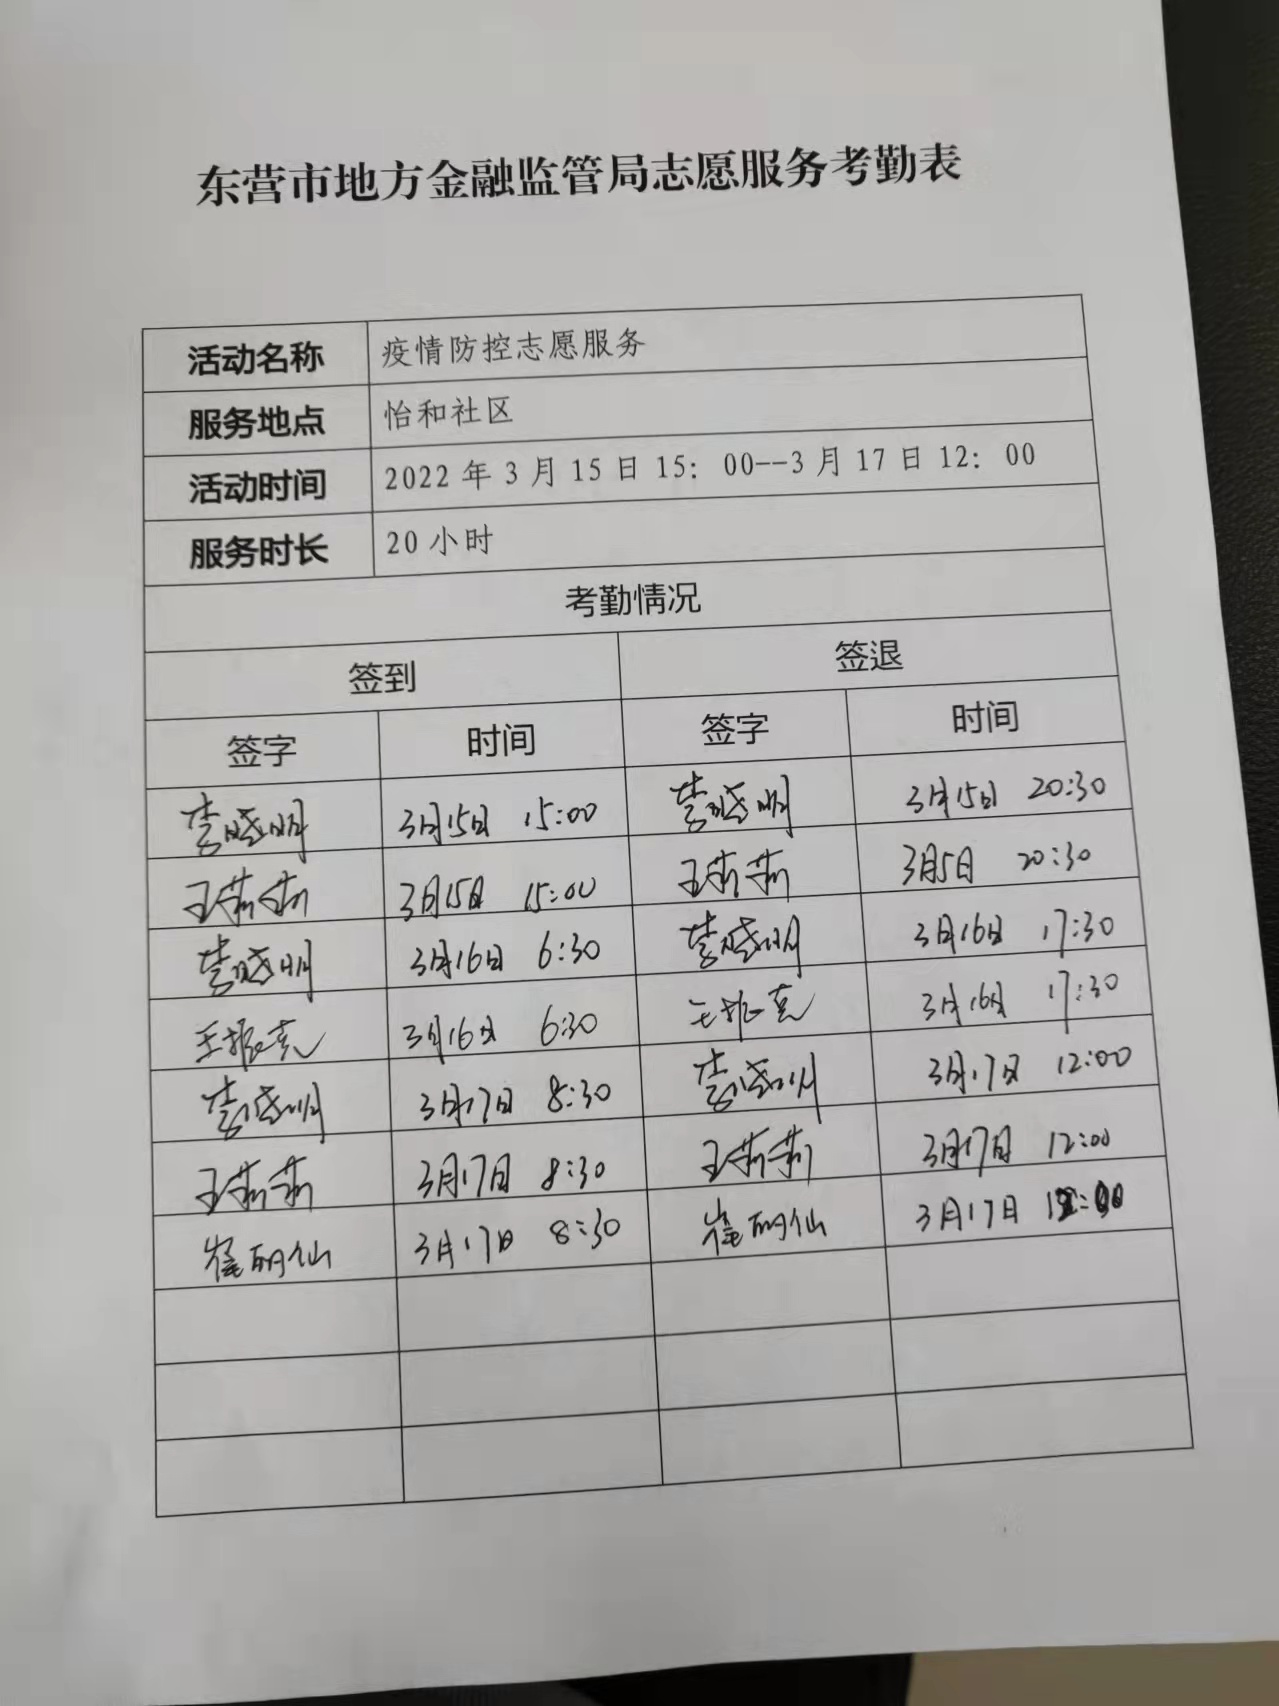 东营市地方金融监管局志愿服务考勤表
活动名称 疫情防控志愿服务
服务地点 怡和社区
活动时间 2022年3月15日15：00--3月17日12：00
服务时长 20小时
考勤情况
签到 签退
签字 时间 签字 时间
李晓明 3月15日 15:00 李晓明 3月15日 20:30
王莉莉 3月15日 15:00 王莉莉 3月5日 20:30
李晓明 3月16日 6:30 李晓明 3月16日 17:30
王振亮 3月16日 6:30 王振亮 3月16日 17:30
李晓明 3月17日 8:30 李晓明 3月17日 12:00
王莉莉 3月17日 8:30 王莉莉 3月17日 12:00
崔丽仙 3月17日 8:30 崔丽仙 3月17日 12:00